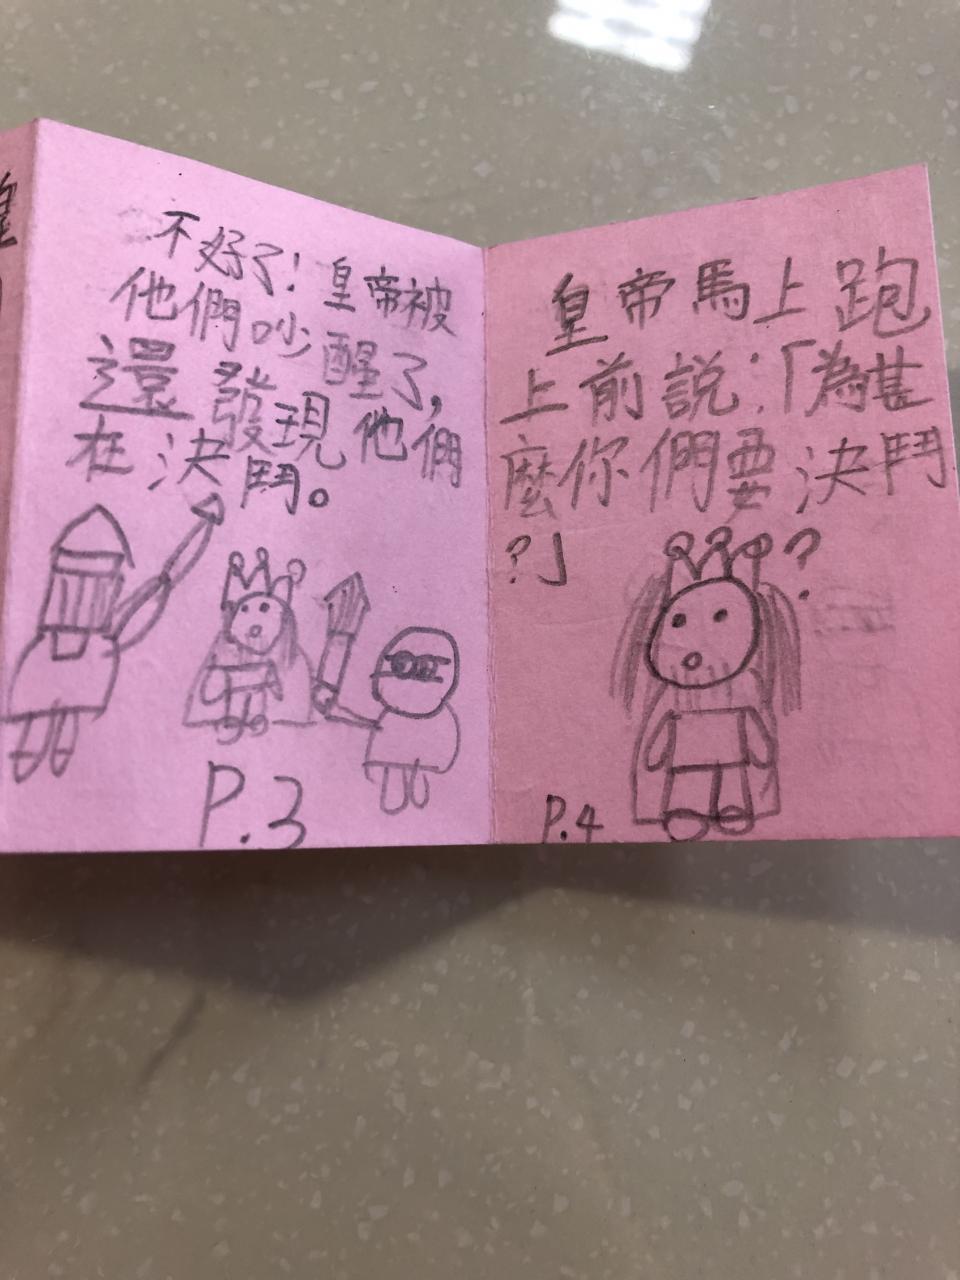 不好了！皇帝被
他們吵醒了，
還發現他們
在決鬥。
P.3
皇帝馬上跑
上前說：「為甚
麼你們要決鬥
？」
?
P.4